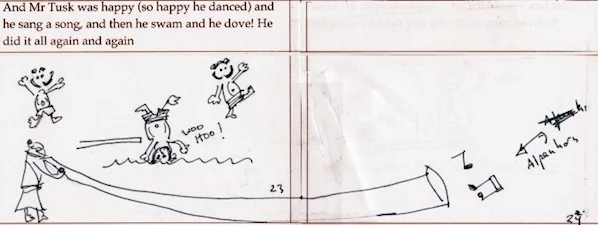 And Mr Tusk was happy (so happy he danced) and
he sang a song, and then he swam and he dove! He
did it all again and again
WOO
HOO!
Alpenhorn
23